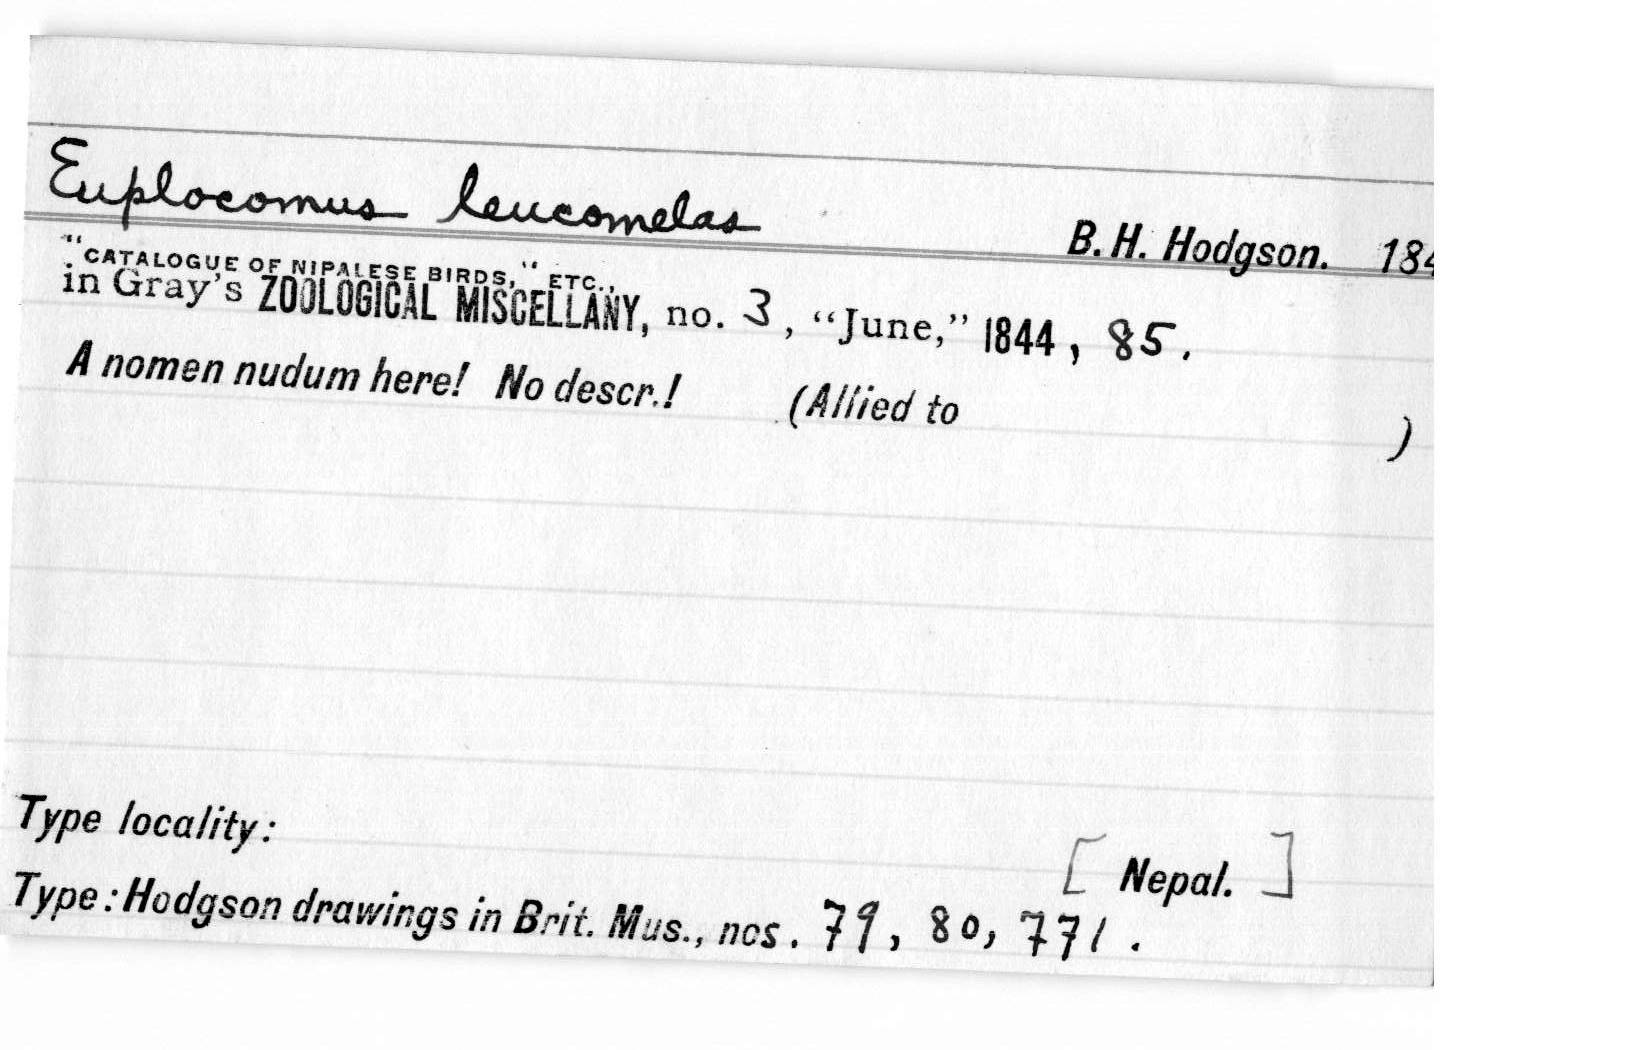 Euplocomus leucomelas B. H. Hodgson. 184
"CATALOGUE OF NIPALESE BIRDS," ETC.,
in Gray's ZOOLOGICAL MISCELLANY, no. 3, “June,” 1844, 85.
A nomen nudum here! No descr.! (Allied to )
Type locality: [Nepal.]
Type: Hodgson drawings in Brit. Mus., nos. 79, 80, 771.